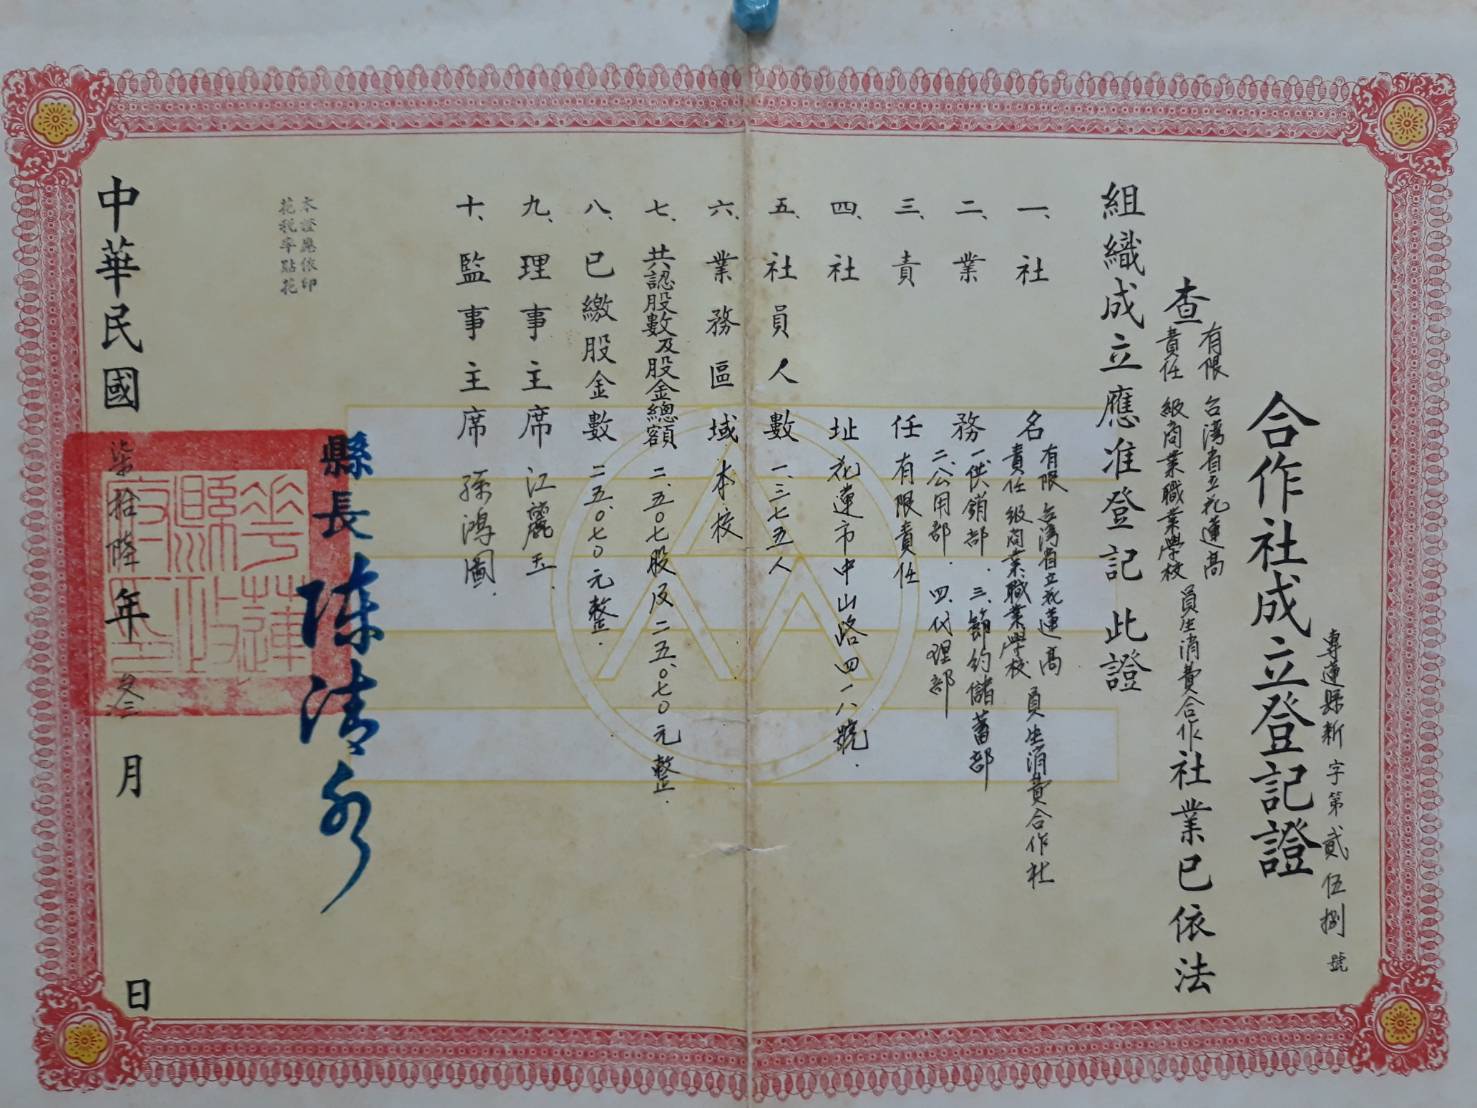 合作社成立登記證
專蓮縣新字第貳伍捌號
查有限責任台灣省立花蓮高級商業職業學校員生消費合作社業已依法
組織成立應准登記此證
一、社名 有限責任台灣省立花蓮高級商業職業學校員生消費合作社
二、業務 一供銷部．三、節約儲蓄部
二、公用部．四、代理部
三、責任 有限責任
四、社址 花蓮市中山路四一八號．
五、社員人數 一、三七五人
六、業務區域 本校
七、共認股數及股金總額 二、五〇七股及二五、〇七〇元整．
八、已繳股金數 二五、〇七〇元整．
九、理事主席 江麗玉．
十、監事主席 孫鴻圖．
縣長 陳清水
本證應依印
花稅率點花
花蓮
縣政
府印
中華民國柒拾陸年叁月 日